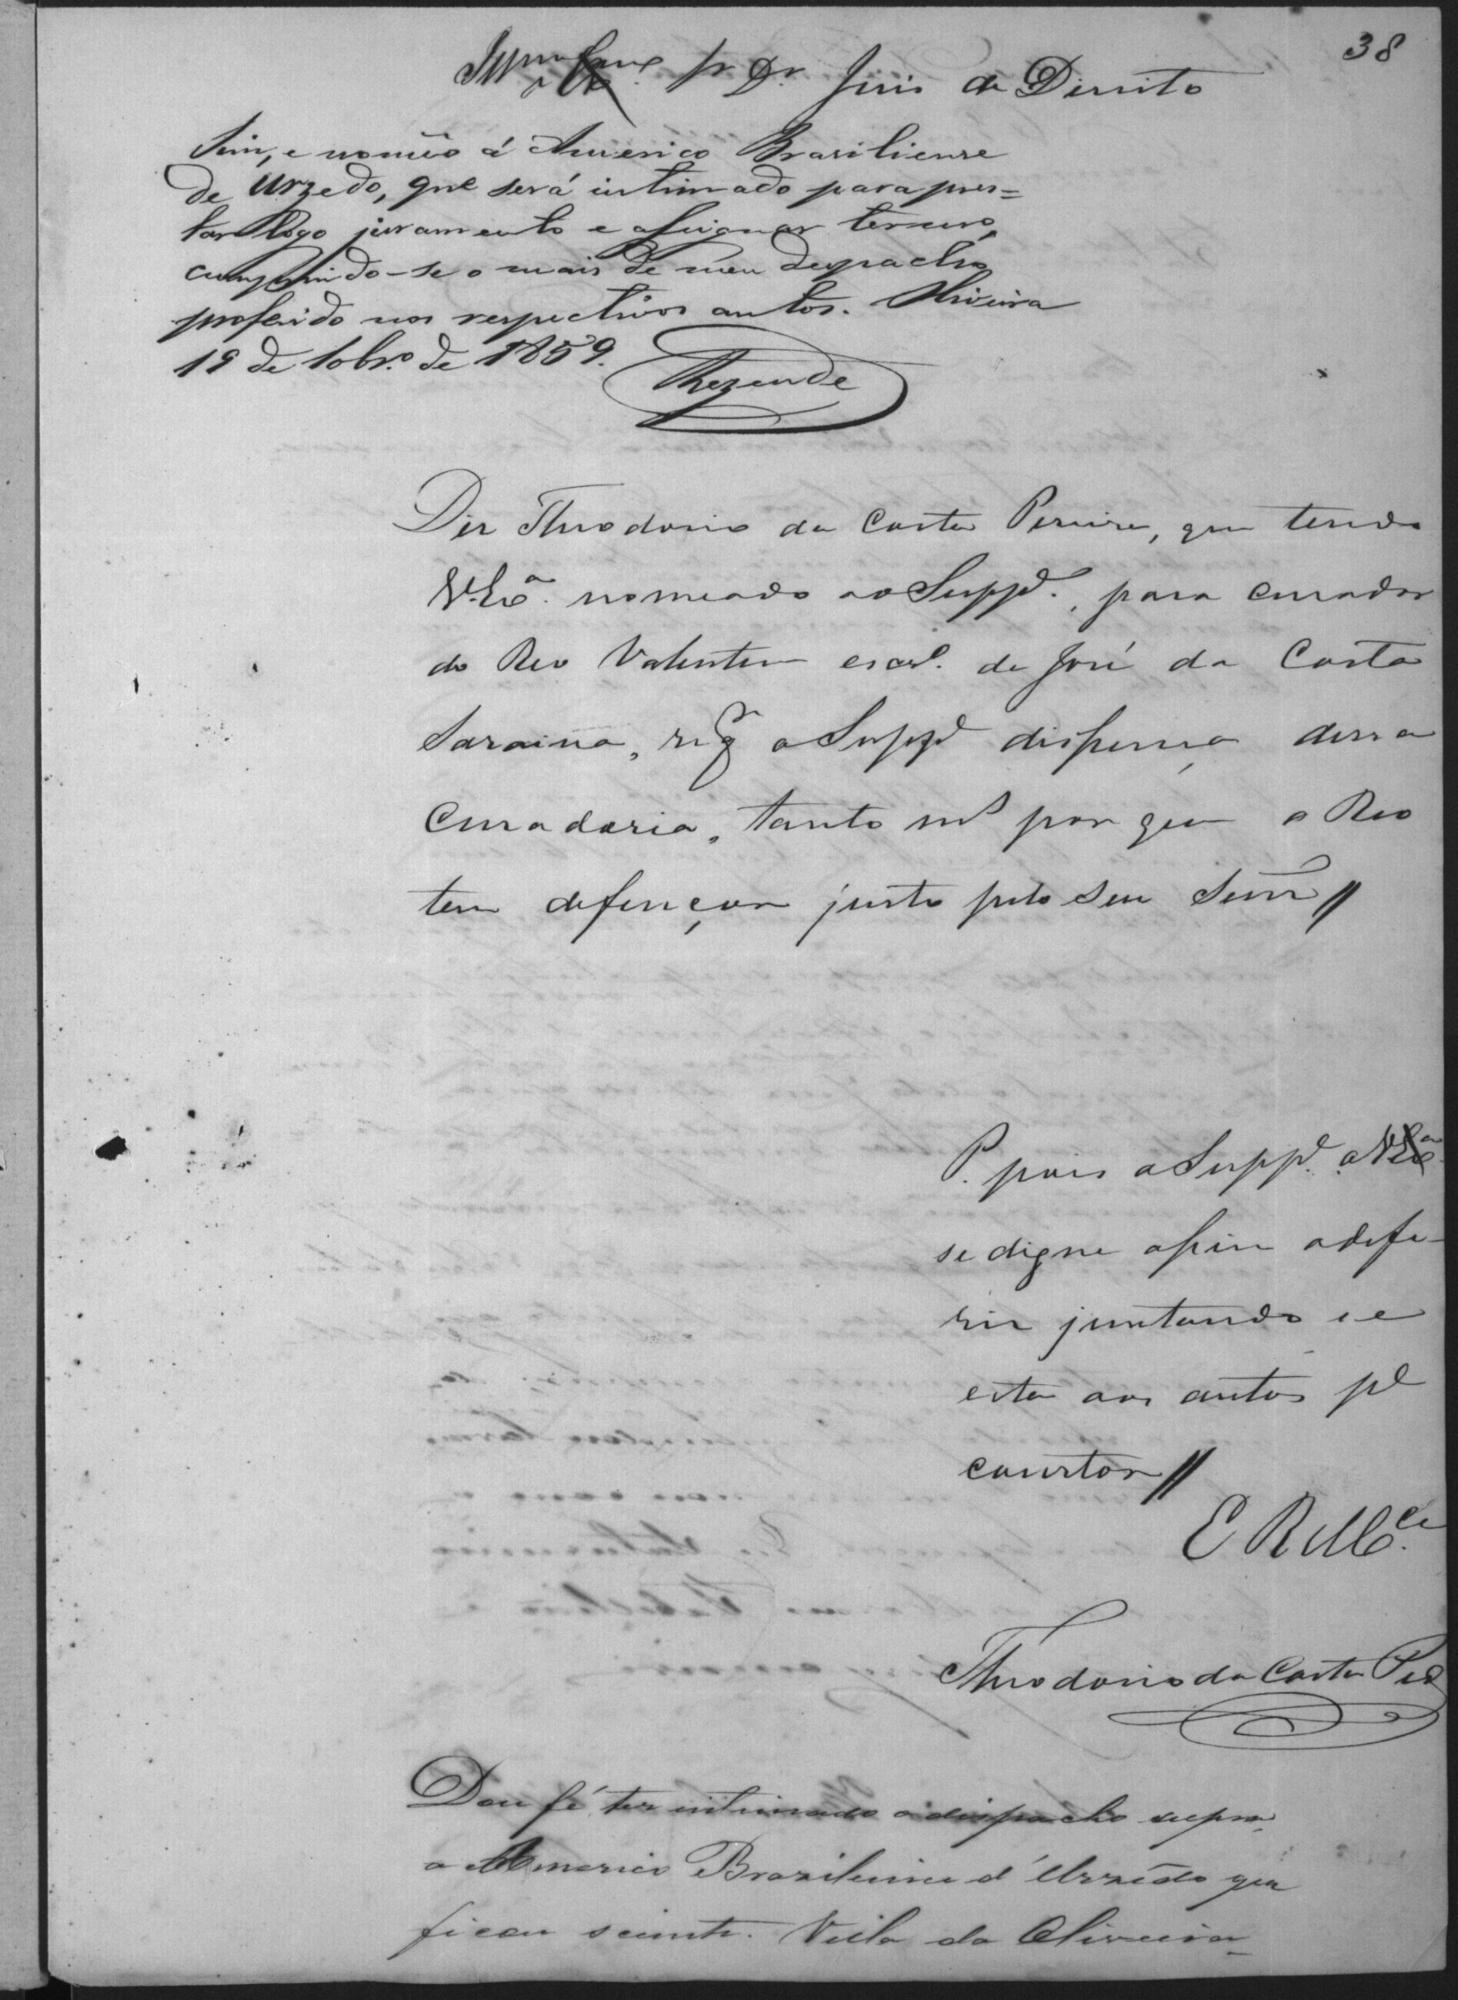 38
Snr. Dr. Juis de Direito
Sim, e nomêo á Americo Brasiliense
de Urzedo, que será intimado para pres=
tar logo juramento e assignar termo,
cumprindo-se o mais de meu despacho
proferido nos respectivos autos. Oliveira
19 de 10br.o de 1859.
Rezende
Diz Theodorio da Costa Pereira, que tendo
V.Ex.a nomeado ao Supp.e, para curador
do Reo Valentim escrº. de José da Costa
Saraiva, rqr o Suppe dispensa dessa
curadoria, tanto ms por que o Reo
tem defençor justo pelo seu Senr //
P. pois o Suppe. a V.Exa
se digne assim o defe-
rir juntando se
esta aos autos pa
constar //
E R Mce.
Theodorio da Costa Pera
Dou fé ter intimado o dispacho supra
a Americo Braziliense d'Urzêdo que
ficou sciente. Villa da Oliveira